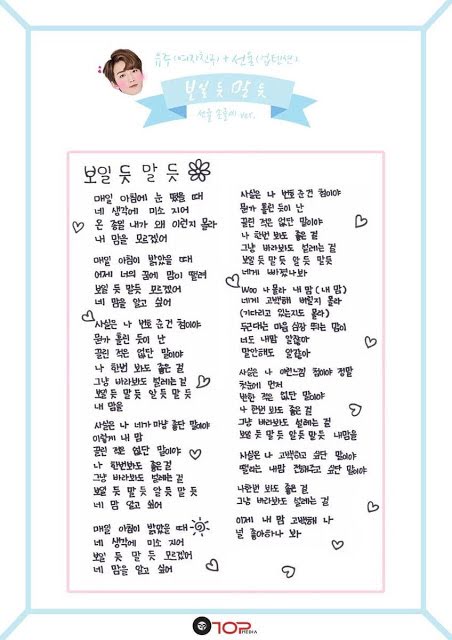 유주(여자친구) + 선율(업텐션)
보일 듯 말 듯
선율 손글씨 ver.
보일 듯 말 듯
매일 아침에 눈 떴을 때
네 생각에 미소 지어
온 종일 내가 왜 이런지 몰라
내 맘을 모르겠어
매일 아침이 밝았을 때
어제 너의 꿈에 맘이 떨려
보일 듯 말듯 모르겠어
네 맘을 알고 싶어
사실은 나 번호 준건 첨이야
뭔가 홀린 듯이 난
끌린 적은 없단 말이야
나 한번 봐도 좋은 걸
그냥 바라봐도 설레는 걸
보일 듯 말 듯 알 듯 말 듯
내 맘을
사실은 나 네가 마냥 좋단 말이야
이렇게 내 맘
끌린 적은 없단 말이야
나 한번봐도 좋은 걸
그냥 바라봐도 설레는 걸
보일 듯 말 듯 알 듯 말 듯
네 맘 알고 싶어
매일 아침이 밝았을 때
네 생각에 미소 지어
보일 듯 말 듯 모르겠어
네 맘을 알고 싶어
사실은 나 번호 준건 첨이야
뭔가 홀린 듯이 난
끌린 적은 없단 말이야
나 한번 봐도 좋은 걸
그냥 바라봐도 설레는 걸
보일 듯 말 듯 알 듯 말 듯
네게 빠졌나봐
Woo 나 몰라 내 맘 (내 맘)
네게 고백해 버릴지 몰라
(기다리고 있는지도 몰라)
두근대는 마음 심장 뛰는 맘이
너도 내맘 알잖아
말안해도 알잖아
사실은 나 이런느낌 첨이야 정말
첫눈에 먼저
반한 적은 없단 말이야
나 한번 봐도 좋은 걸
그냥 바라봐도 설레는 걸
보일 듯 말 듯 알듯 말 듯 내맘을
사실은 나 고백하고 싶단 말이야
떨리는 내맘 전해주고 싶단 말이야
나한번 봐도 좋은 걸
그냥 바라봐도 설레는 걸
이제 내 맘 고백해 나
널 좋아하나 봐
TOP
MEDIA